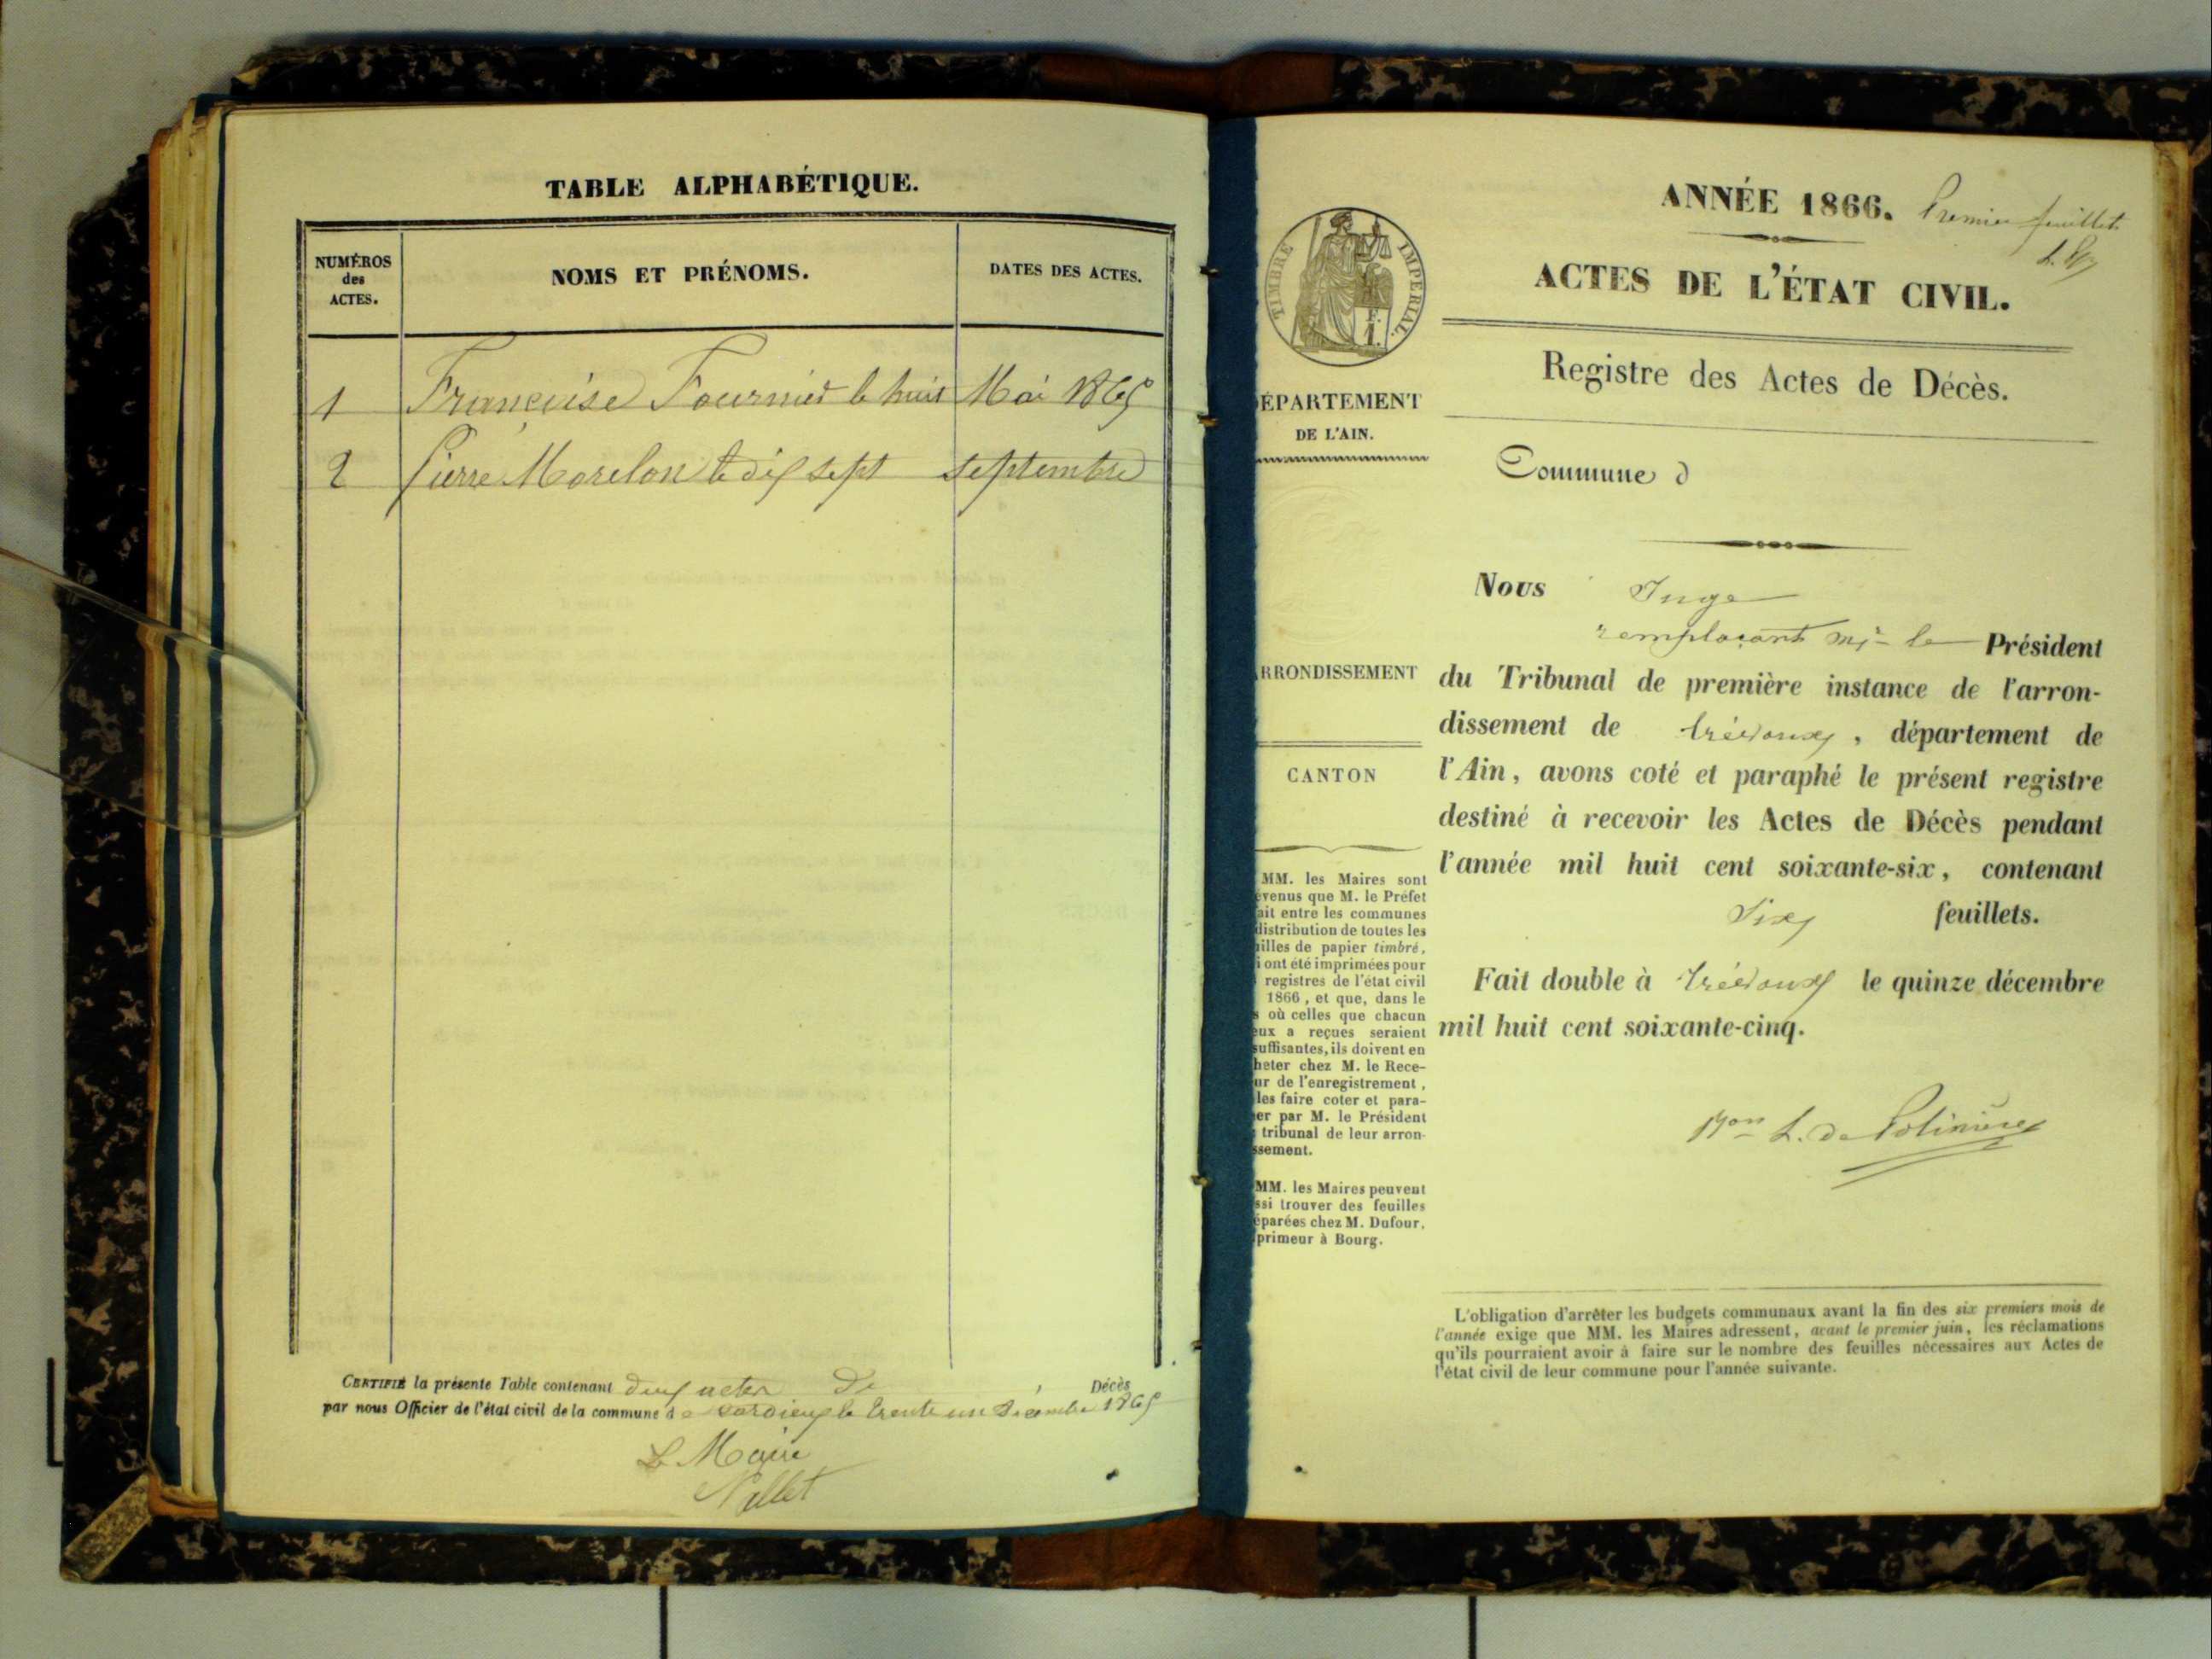 TABLE ALPHABÉTIQUE.
NUMÉROS
des
ACTES.
NOMS ET PRÉNOMS.
DATES DES ACTES.
1 Françoise Fournier le huit Mai 1865
2 Pierre Morelon le dix sept septembre
CERTIFIÉ la présente Table contenant deux actes de Décès
par nous Officier de l'état civil de la commune de le trente un Décembre 1865
Le Maire
Nallet
ANNÉE 1866. Premier feuillet
ACTES DE L'ÉTAT CIVIL.
TIMBRE IMPERIAL.
Registre des Actes de Décès.
ÉPARTEMENT
DE L'AIN.
Commune d
Nous Juge
remplaçant Mr le Président
du Tribunal de première instance de l'arron-
dissement de trévoux, département de
l'Ain, avons coté et paraphé le présent registre
destiné à recevoir les Actes de Décès pendant
l'année mil huit cent soixante-six, contenant
Six feuillets.
Fait double à trévoux le quinze décembre
mil huit cent soixante-cinq.
Bon L. de Polinière
RRONDISSEMENT
CANTON
MM. les Maires sont
evenus que M. le Préfet
ait entre les communes
distribution de toutes les
illes de papier timbré,
i ont été imprimées pour
registres de l'état civil
1866, et que, dans le
s où celles que chacun
eux a reçues seraient
suffisantes, ils doivent en
heter chez M. le Rece-
ur de l'enregistrement,
les faire coter et para-
er par M. le Président
tribunal de leur arron-
ssement.
MM. les Maires peuvent
ssi trouver des feuilles
éparées chez M. Dufour,
primeur à Bourg.
L'obligation d'arrêter les budgets communaux avant la fin des six premiers mois de
l'année exige que MM. les Maires adressent, avant le premier juin, les réclamations
qu'ils pourraient avoir à faire sur le nombre des feuilles nécessaires aux Actes de
l'état civil de leur commune pour l'année suivante.